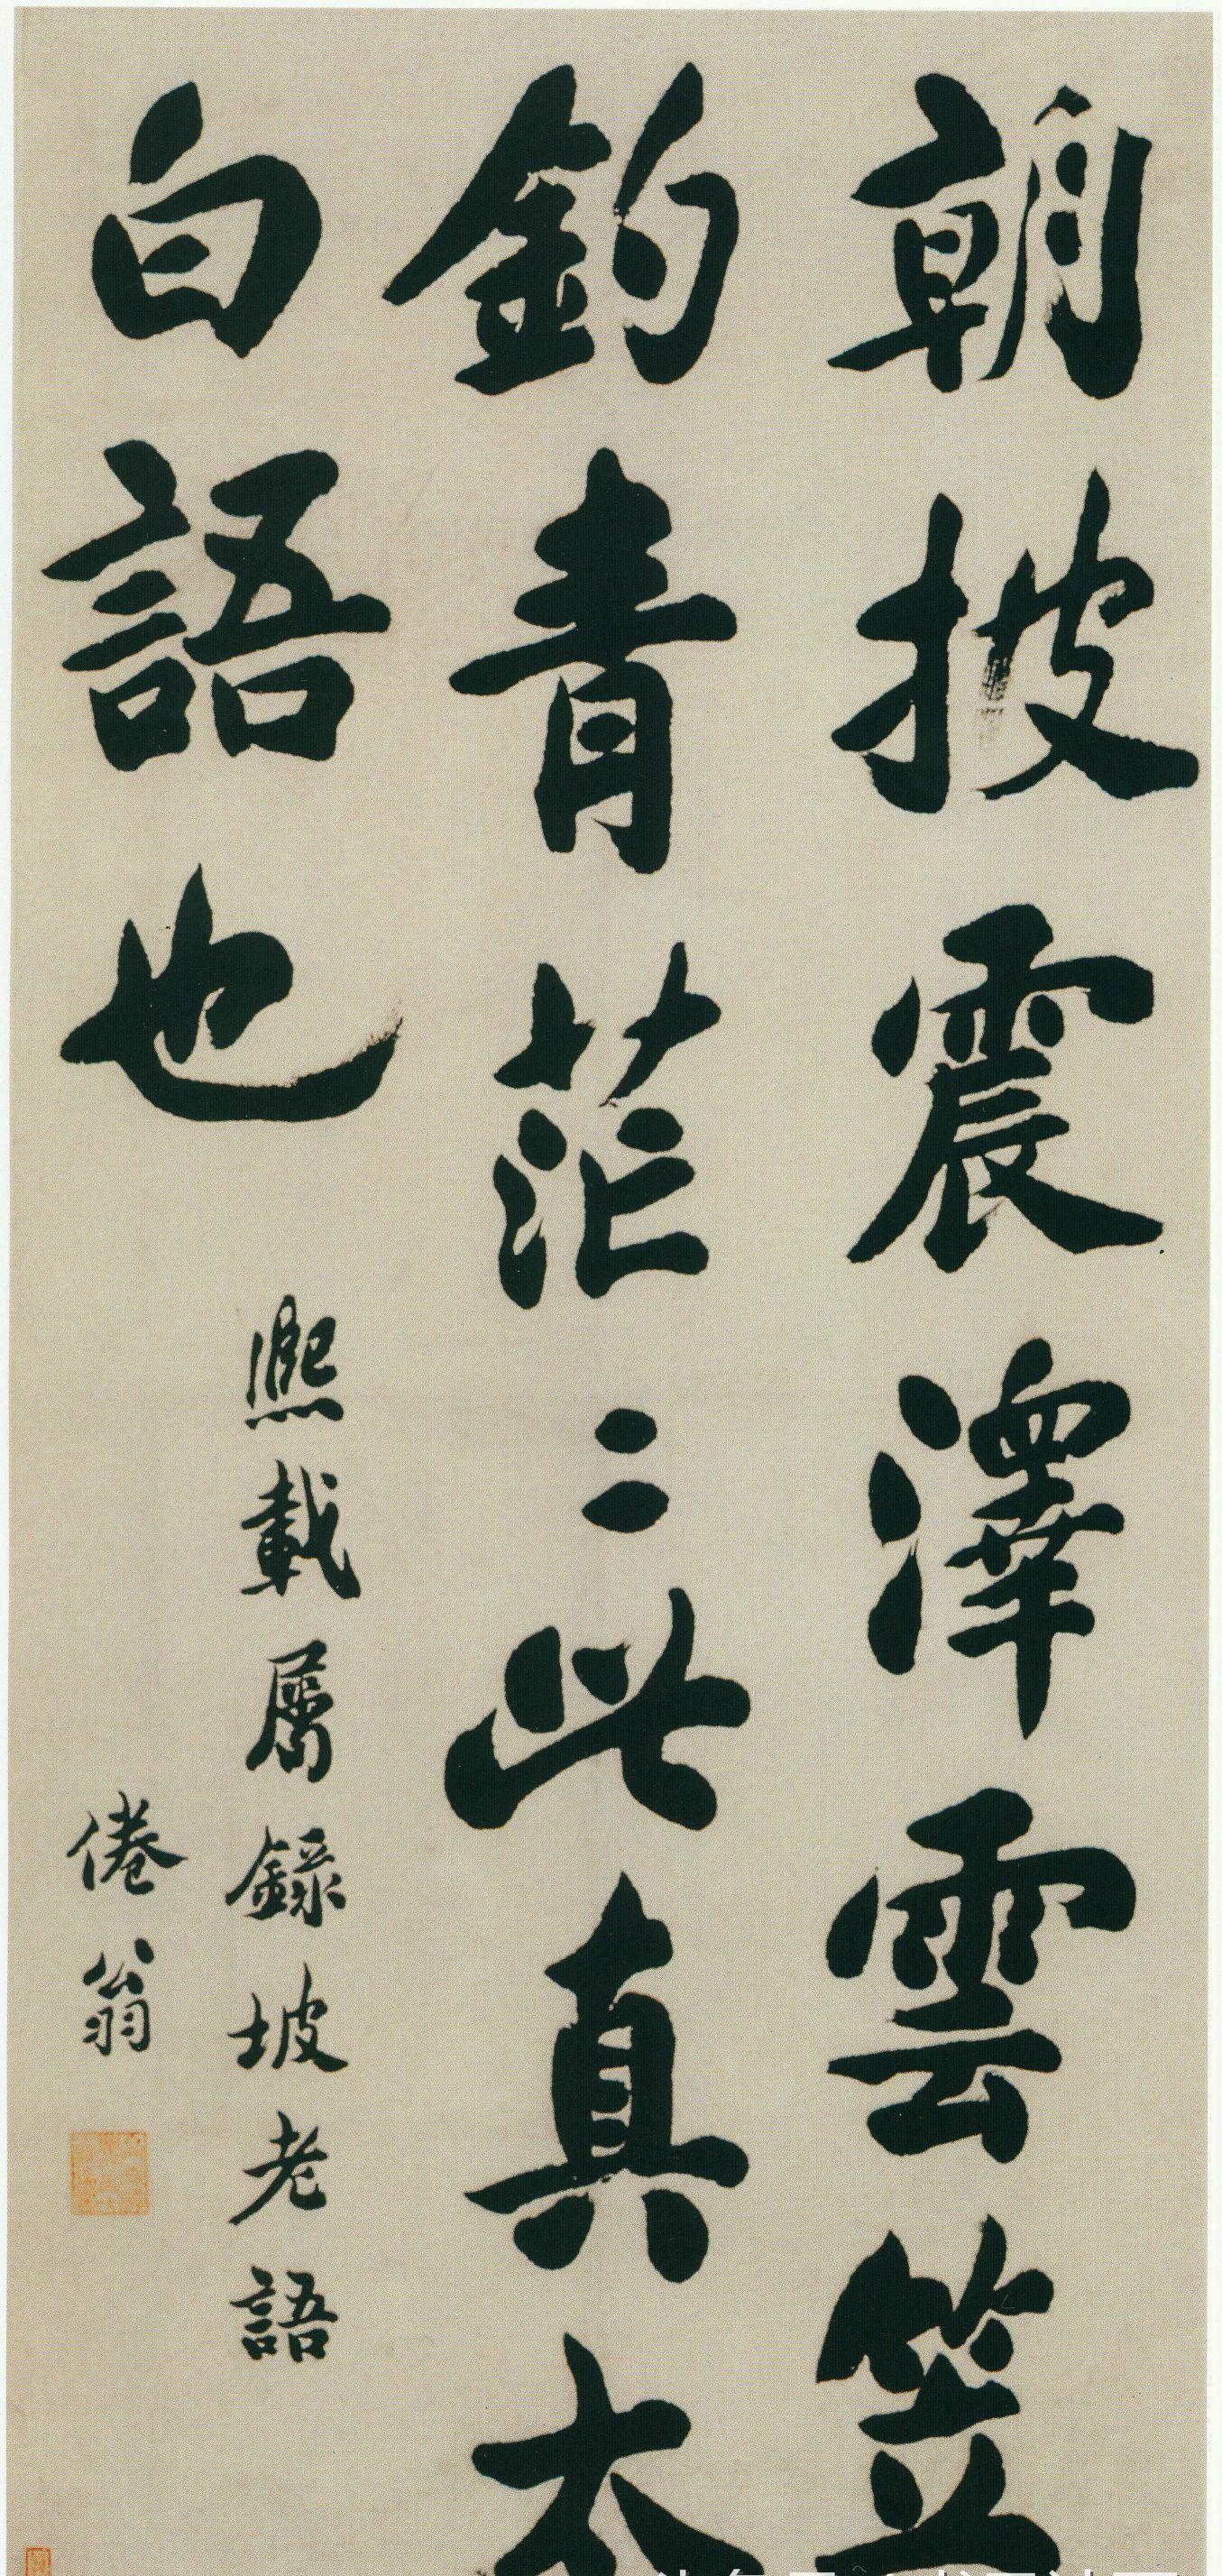 朝披震澤雲笠
釣青茫〻此真太
白語也
熙載属錄坡老語
倦翁